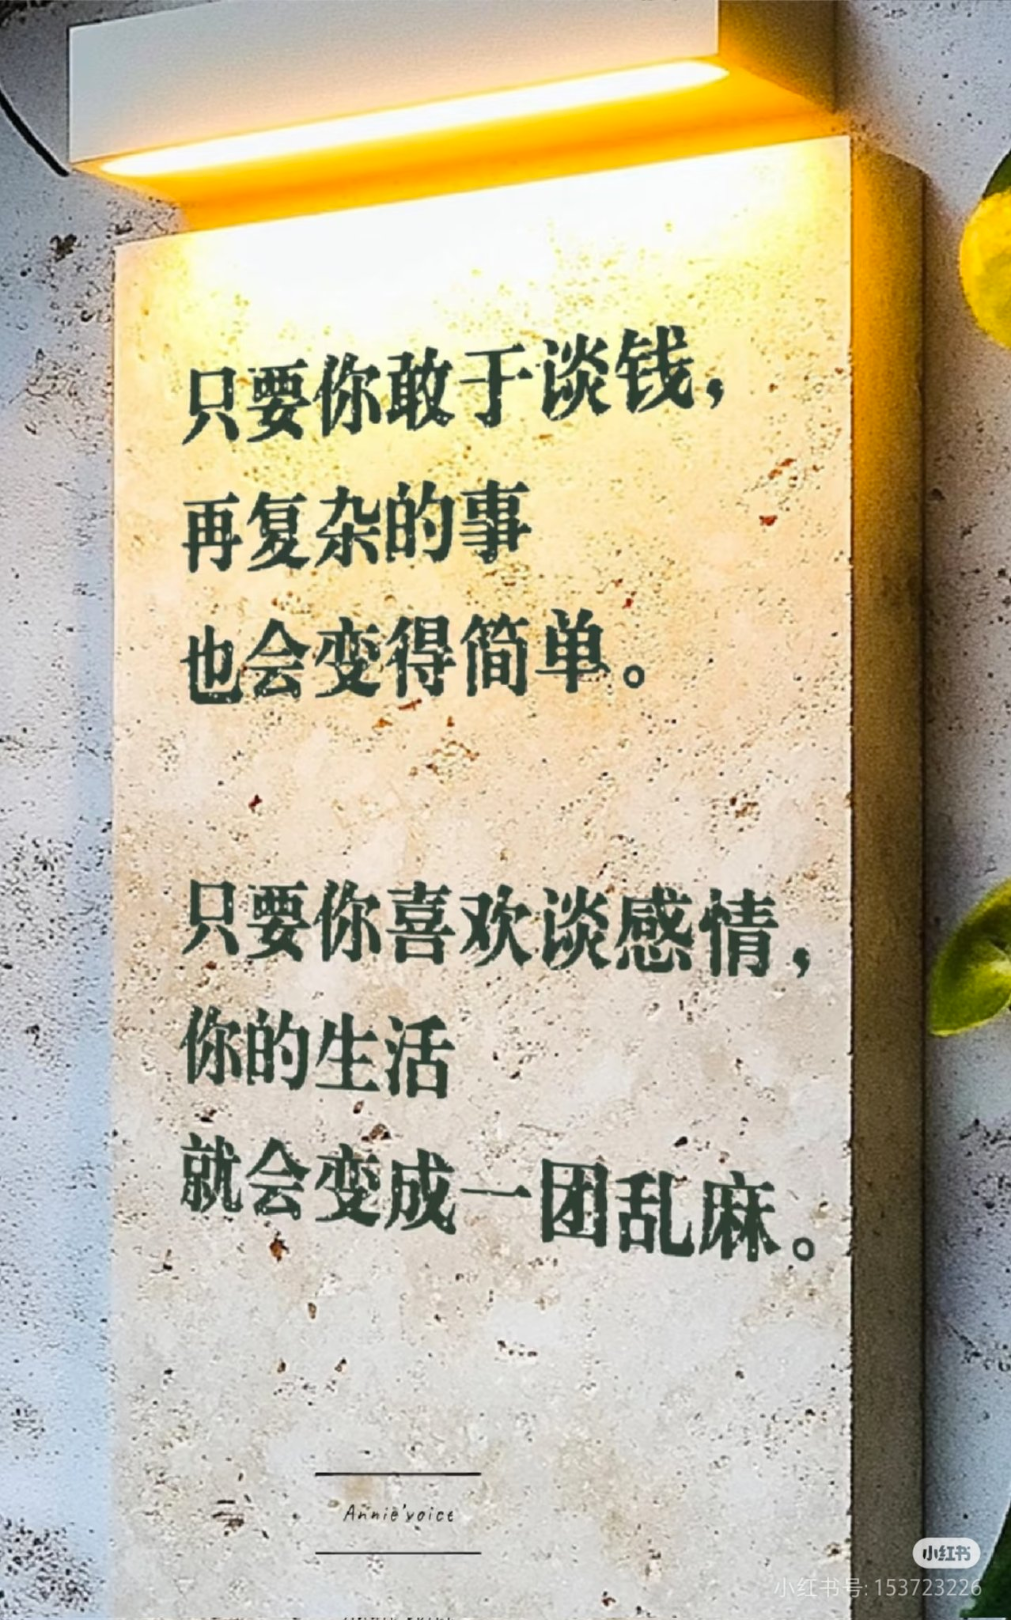 只要你敢于谈钱，
再复杂的事
也会变得简单。
只要你喜欢谈感情，
你的生活
就会变成一团乱麻。
Annie'voice
小红书
小红书号: 153723226